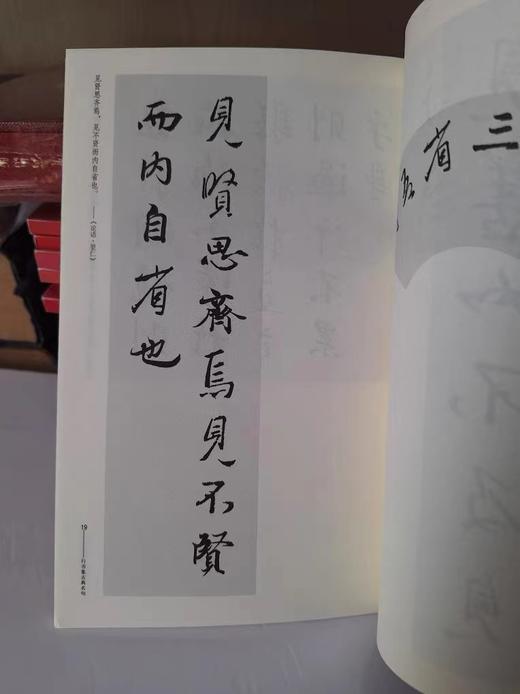 三省吾
見賢思齊焉見不賢
而内自省也
见贤思齐焉，见不贤而内自省也。——《论语·里仁》
19